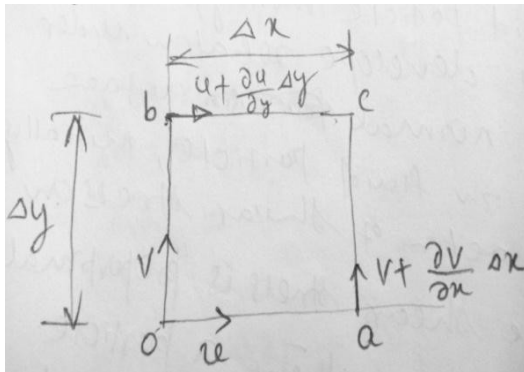 Δx
u + ∂u/∂y Δy
b
c
Δy
v
v + ∂v/∂x Δx
o
u
a